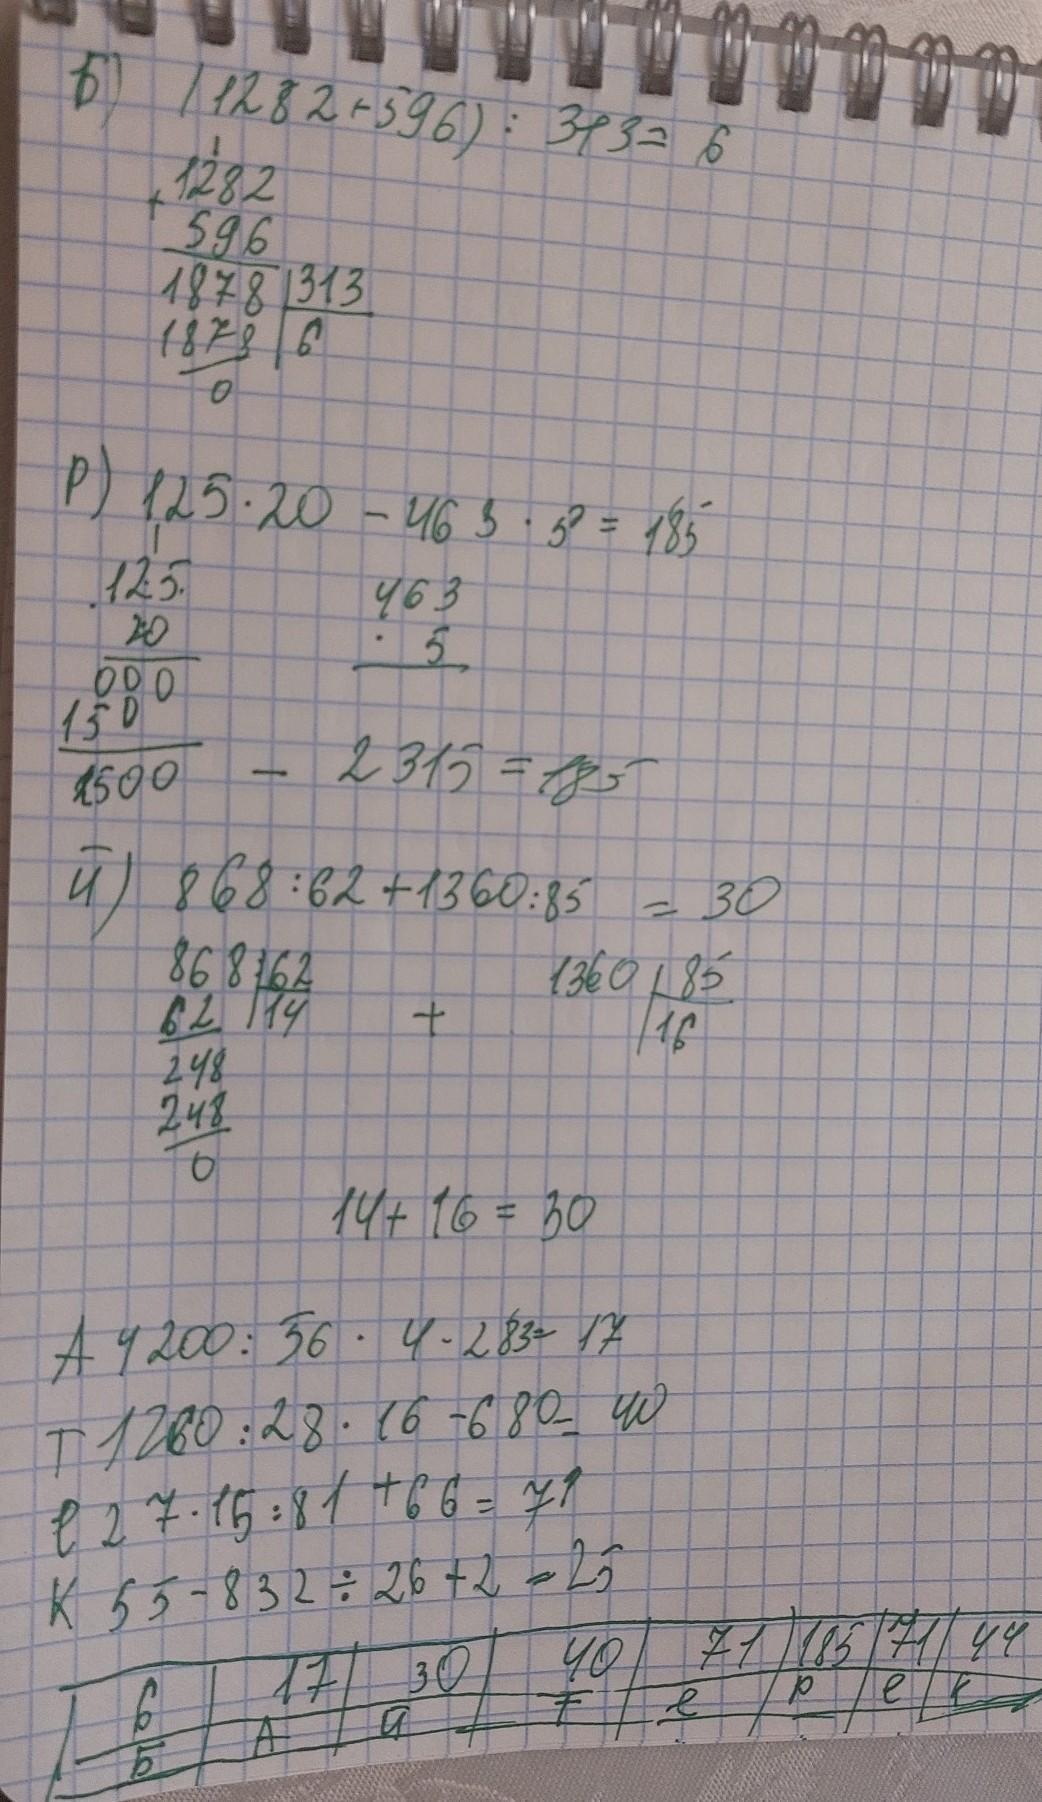 Б) (1282+596) : 313= 6
1
+ 1282
596
1878 313
1878 6
0
Р) 125·20 - 463 · 5 = 185
1
125 463
20 · 5
000
150
1500 - 2315 = 185
Й) 868:62+1360:85 = 30
868 62 1360 85
62 14 + 16
248
248
0
14+16=30
А 4200: 56 · 4-283= 17
Т 1260:28·16-680= 40
е 27·15:81+66= 71
К 55-832÷26+2=25
6 17 30 40 71 185 71 44
Б А й т е р е к